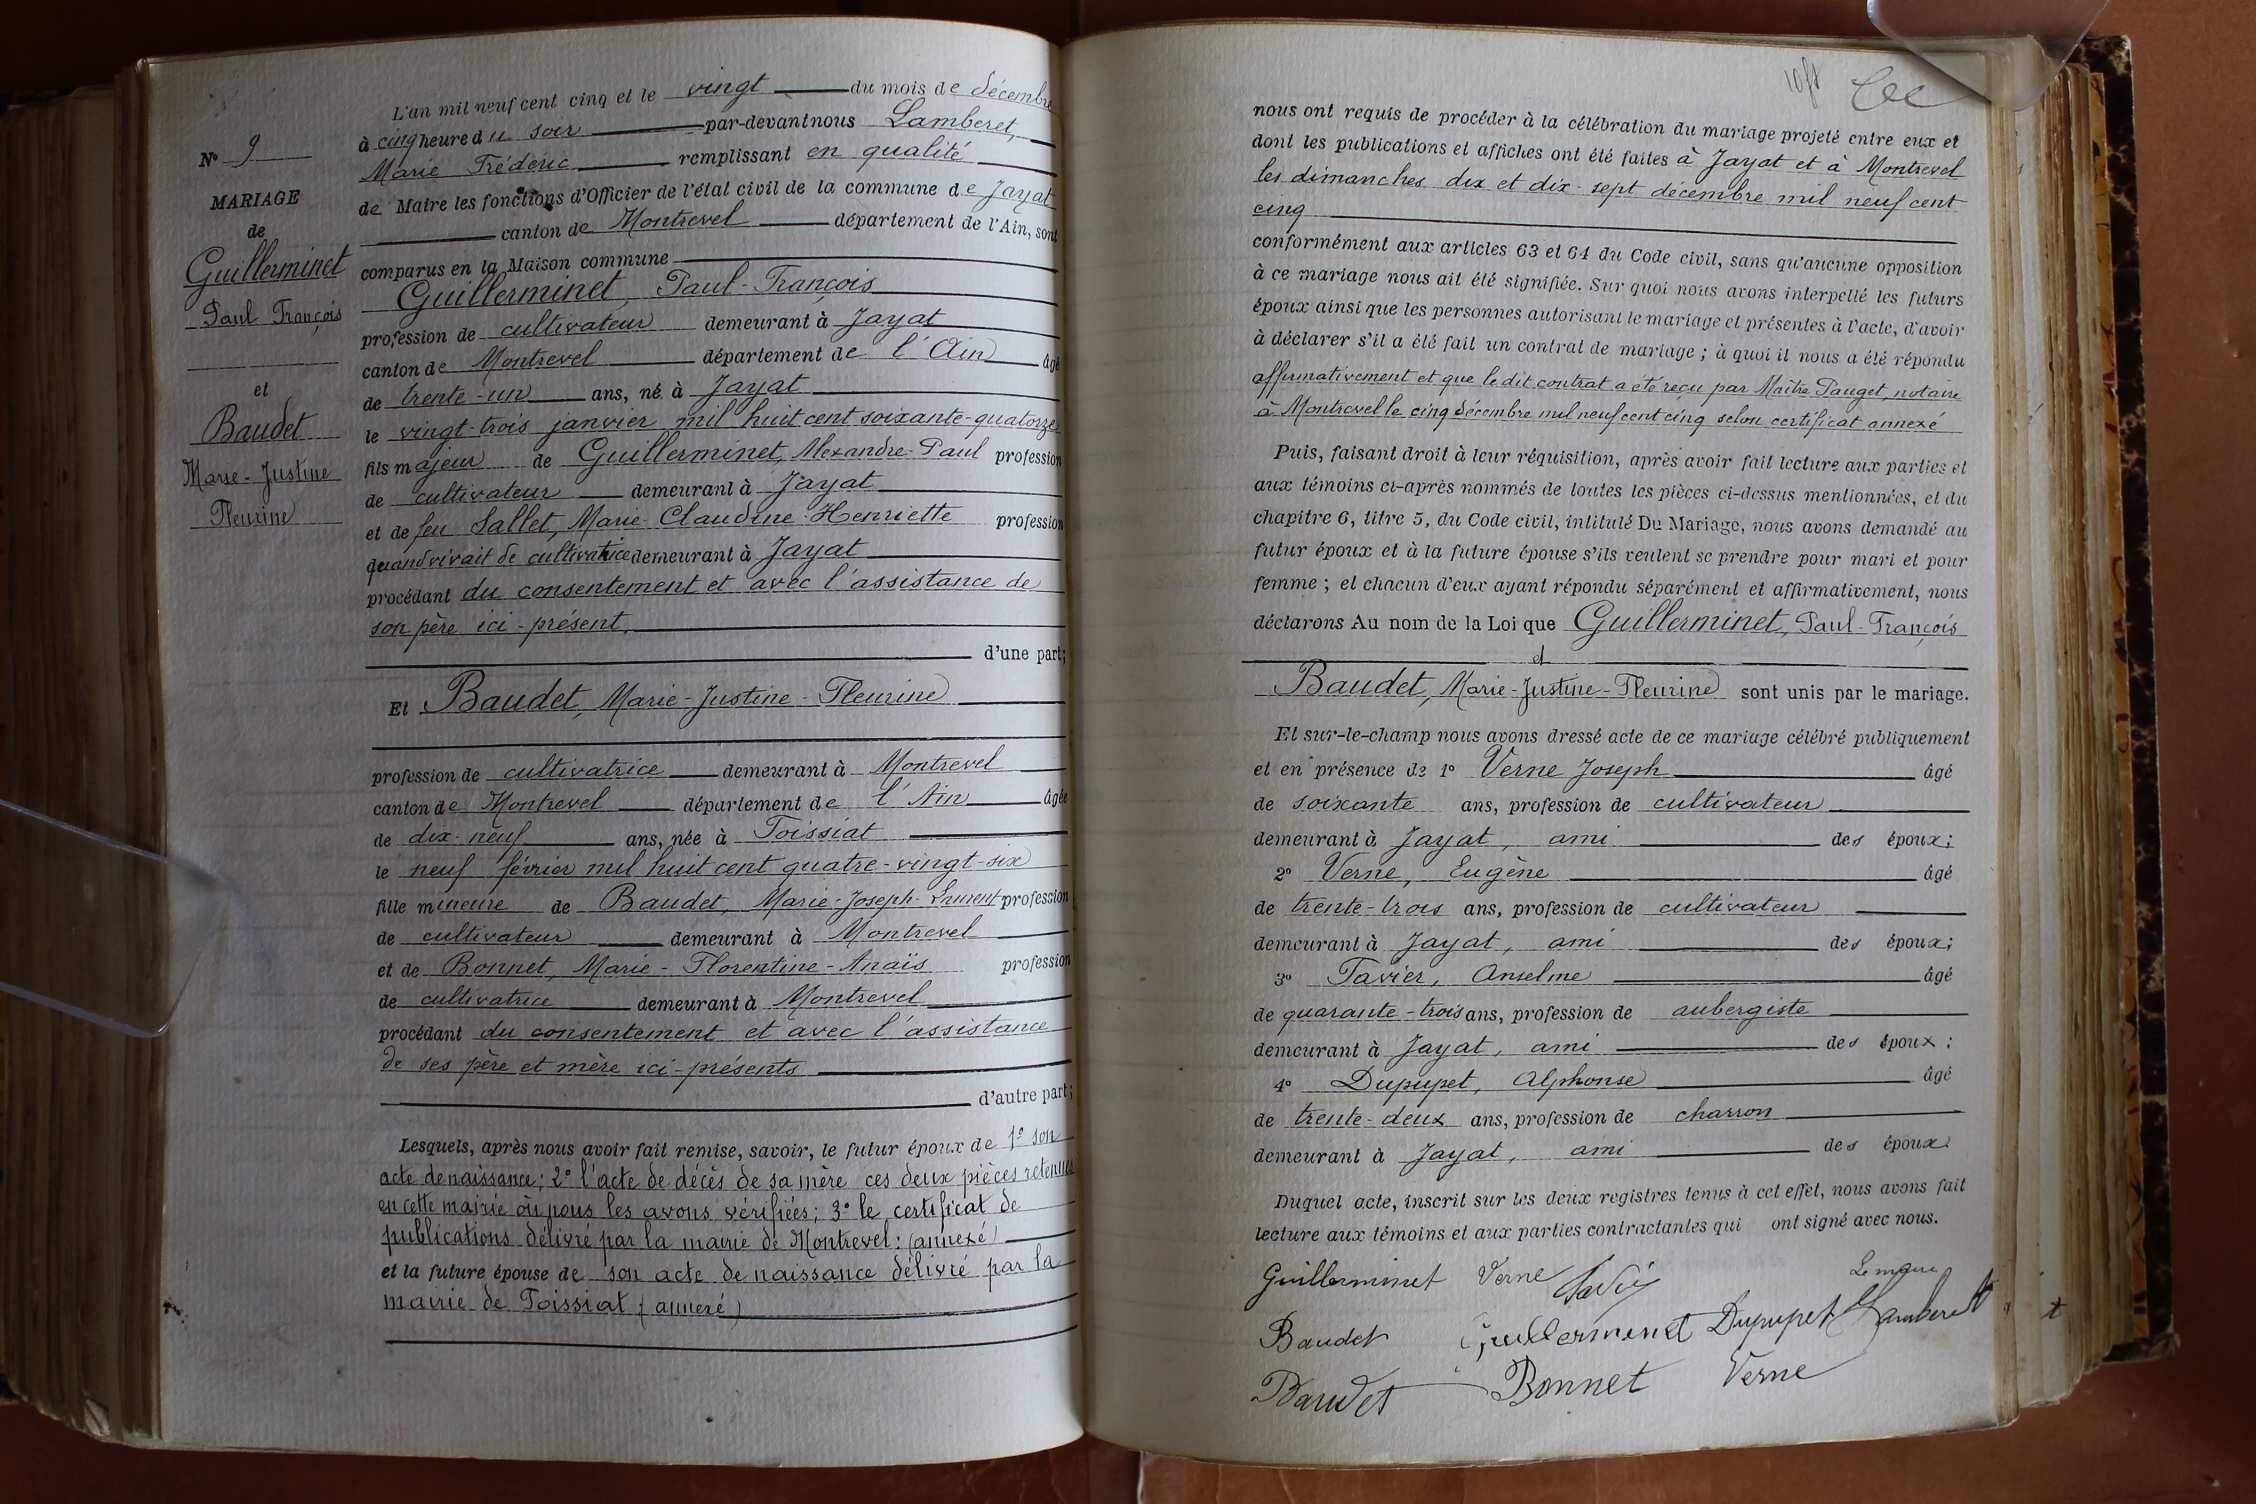 N° 9
MARIAGE
de
Guillerminet
Paul François
et
Baudet
Marie-Justine
Fleurine
L'an mil neuf cent cinq et le vingt du mois de décembre
à cinq heure du soir par-devant nous Lamberet,
Marie Fréderic remplissant en qualité
de Maire les fonctions d'Officier de l'état civil de la commune de Jayat
canton de Montrevel département de l'Ain, sont
comparus en la Maison commune
Guillerminet, Paul-François
profession de cultivateur demeurant à Jayat
canton de Montrevel département de l'Ain âgé
de trente-un ans, né à Jayat
le vingt-trois janvier mil huit cent soixante-quatorze
fils majeur de Guillerminet, Alexandre-Paul profession
de cultivateur demeurant à Jayat
et de feu Sallet, Marie-Claudine-Henriette profession
quand vivait de cultivatrice demeurant à Jayat
procédant du consentement et avec l'assistance de
son père ici-présent.
d'une part;
Et Baudet, Marie-Justine-Fleurine
profession de cultivatrice demeurant à Montrevel
canton de Montrevel département de l'Ain âgée
de dix-neuf ans, née à Foissiat
le neuf février mil huit cent quatre-vingt-six
fille mineure de Baudet, Marie-Joseph-Laurent profession
de cultivateur demeurant à Montrevel
et de Bonnet, Marie-Florentine-Anaïs profession
de cultivatrice demeurant à Montrevel
procédant du consentement et avec l'assistance
de ses père et mère ici-présents
d'autre part;
Lesquels, après nous avoir fait remise, savoir, le futur époux de 1° son
acte de naissance; 2° l'acte de décès de sa mère ces deux pièces retenues
en cette mairie où nous les avons vérifiées; 3° le certificat de
publications délivré par la mairie de Montrevel: (annexé)
et la future épouse de son acte de naissance délivré par la
mairie de Foissiat (annexé)
nous ont requis de procéder à la célébration du mariage projeté entre eux et
dont les publications et affiches ont été faites à Jayat et à Montrevel
les dimanches dix et dix-sept décembre mil neuf cent
cinq
conformément aux articles 63 et 64 du Code civil, sans qu'aucune opposition
à ce mariage nous ait été signifiée. Sur quoi nous avons interpellé les futurs
époux ainsi que les personnes autorisant le mariage et présentes à l'acte, d'avoir
à déclarer s'il a été fait un contrat de mariage; à quoi il nous a été répondu
affirmativement et que le dit contrat a été reçu par Maître Pauget, notaire
à Montrevel le cinq décembre mil neuf cent cinq selon certificat annexé
Puis, faisant droit à leur réquisition, après avoir fait lecture aux parties et
aux témoins ci-après nommés de toutes les pièces ci-dessus mentionnées, et du
chapitre 6, titre 5, du Code civil, intitulé Du Mariage, nous avons demandé au
futur époux et à la future épouse s'ils veulent se prendre pour mari et pour
femme; et chacun d'eux ayant répondu séparément et affirmativement, nous
déclarons Au nom de la Loi que Guillerminet, Paul-François
et
Baudet, Marie-Justine-Fleurine sont unis par le mariage.
Et sur-le-champ nous avons dressé acte de ce mariage célébré publiquement
et en présence de 1° Verne Joseph âgé
de soixante ans, profession de cultivateur
demeurant à Jayat, ami des époux;
2° Verne, Eugène âgé
de trente-trois ans, profession de cultivateur
demeurant à Jayat, ami des époux;
3° Favier, Anselme âgé
de quarante-trois ans, profession de aubergiste
demeurant à Jayat, ami des époux;
4° Dupupet, Alphonse âgé
de trente-deux ans, profession de charron
demeurant à Jayat, ami des époux
Duquel acte, inscrit sur les deux registres tenus à cet effet, nous avons fait
lecture aux témoins et aux parties contractantes qui ont signé avec nous.
Guillerminet Verne Le maire
Baudet Guillerminet Dupupet Lamberet
Baudet Bonnet Verne